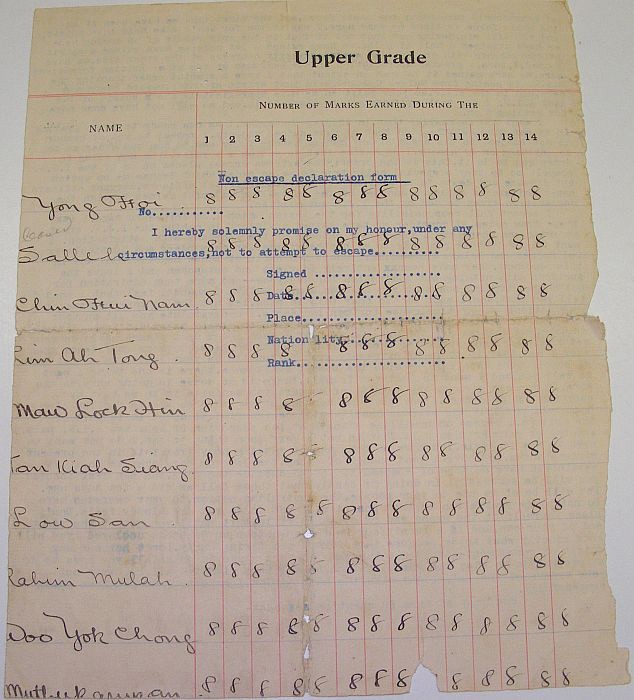 Upper Grade
NAME
NUMBER OF MARKS EARNED DURING THE
1 2 3 4 5 6 7 8 9 10 11 12 13 14
Non escape declaration form
Yong Hoi 8 8 8 8 8 8 8 8 8 8 8 8 8 8
No...........
I hereby solemnly promise on my honour,under any
Salleh 8 8 8 8 8 8 8 8 8 8 8 8 8 8
circumstances,not to attempt to escape..........
Signed ..................
Chin Hui Nam 8 8 8 8 8 8 8 8 8 8 8 8 8 8
Date....................
Place....................
Lim Ah Tong 8 8 8 8 8 8 8 8 8 8 8 8 8
Nation lity..............
Rank.....................
Maw Lock Hin 8 8 8 8 8 8 8 8 8 8 8 8 8
Tan Kiah Siang 8 8 8 8 8 8 8 8 8 8 8 8 8
Low San 8 8 8 8 8 8 8 8 8 8 8 8 8 8
Rahim Mulah 8 8 8 8 8 8 8 8 8 8 8 8 8 8
Woo Yok Chong 8 8 8 8 8 8 8 8 8 8 8 8 8 8
8 8 8 8 8 8 8 8 8 8 8 8 8